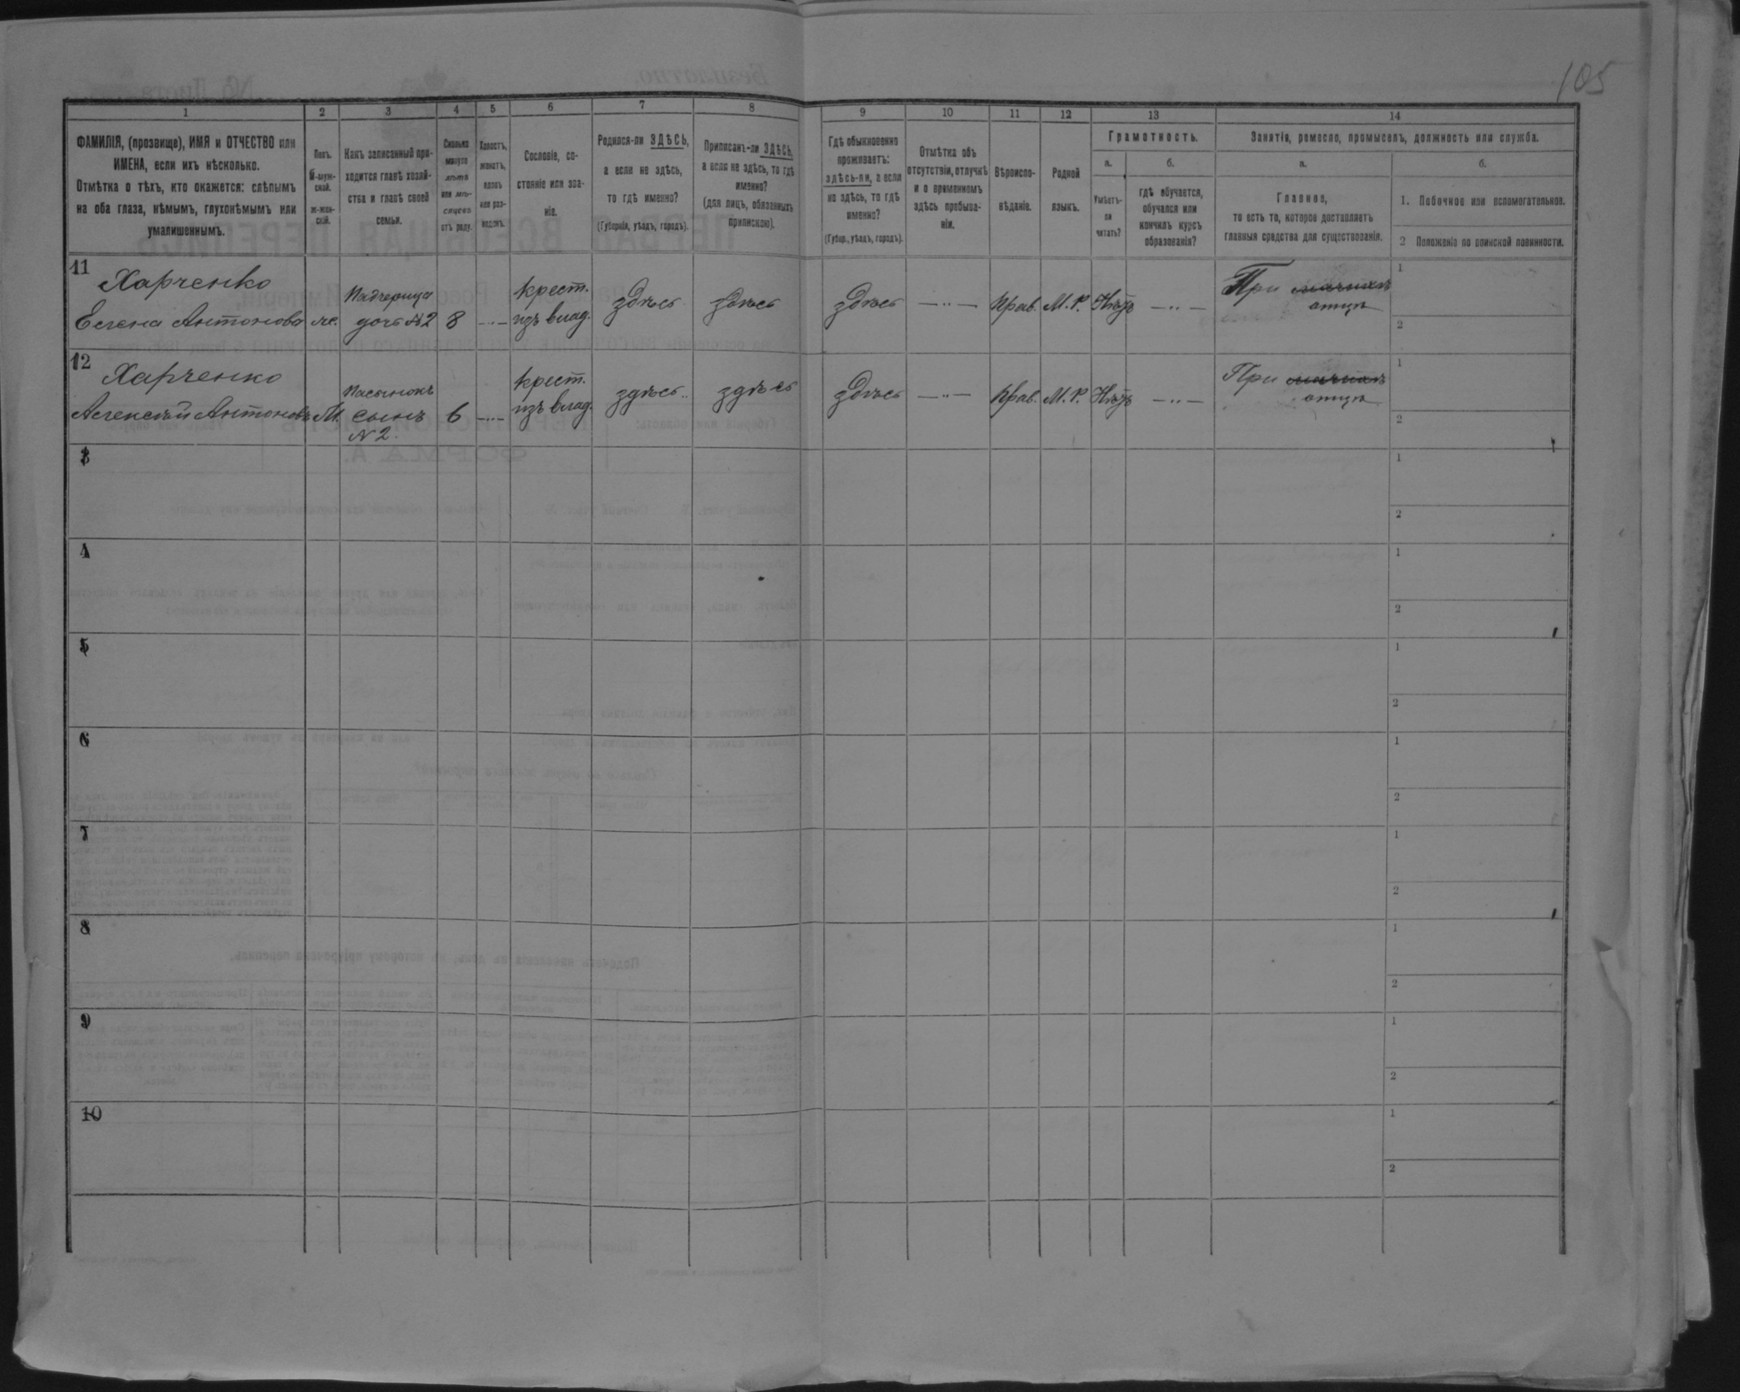 105
1 2 3 4 5 6 7 8 9 10 11 12 13 14
ФАМИЛІЯ, (прозвище), ИМЯ и ОТЧЕСТВО или
ИМЕНА, если ихъ нѣсколько.
Отмѣтка о тѣхъ, кто окажется: слѣпымъ
на оба глаза, нѣмымъ, глухонѣмымъ или
умалишеннымъ.
Полъ.
М-муж-
ской.
ж-жен-
скій.
Какъ записанный при-
ходится главѣ хозяй-
ства и главѣ своей
семьи.
Сколько
минуло
лѣтъ
или мѣ-
сяцевъ
отъ роду.
Холостъ,
женатъ,
вдовъ
или раз-
веденъ.
Сословіе, со-
стояніе или зва-
ніе.
Родился-ли ЗДѢСЬ,
а если не здѣсь,
то гдѣ именно?
(Губернія, уѣздъ, городъ).
Приписанъ-ли ЗДѢСЬ,
а если не здѣсь, то гдѣ
именно?
(для лицъ, обязанныхъ
припискою).
Гдѣ обыкновенно
проживаетъ:
здѣсь-ли, а если
не здѣсь, то гдѣ
именно?
(Губер., уѣздъ, городъ).
Отмѣтка объ
отсутствіи, отлучкѣ
и о временномъ
здѣсь пребыва-
ніи.
Вѣроиспо-
вѣданіе.
Родной
языкъ.
Грамотность.
а.
Умѣетъ-
ли
читать?
б.
гдѣ обучается,
обучался или
кончилъ курсъ
образованія?
Занятіе, ремесло, промыселъ, должность или служба.
а.
Главное,
то есть то, которое доставляетъ
главныя средства для существованія.
б.
1. Побочное или вспомогательное.
2 Положеніе по воинской повинности.
11
Харченко
Елена Антонова
ж.
Падчерица
дочь №2
8
—··—
крест.
изъ влад.
здѣсь
здѣсь
здѣсь
—··—
Прав.
М.Р.
Нѣтъ
—··—
При
отцѣ
1
2
12
Харченко
Алексѣй Антоновъ
М.
Пасынокъ
сынъ
№2.
6
—··—
крест.
изъ влад.
здѣсь
здѣсь
здѣсь
—··—
Прав.
М.Р.
Нѣтъ
—··—
При
отцѣ
1
2
3
1
2
4
1
2
5
1
2
6
1
2
7
1
2
8
1
2
9
1
2
10
1
2